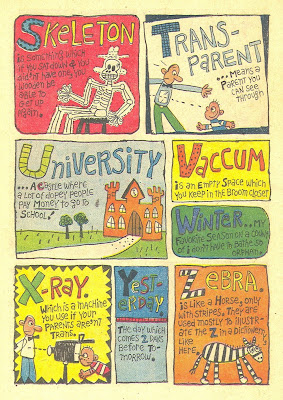 SKELETON
is something which
if you sat down & you
didn't have only you
wooden be
able to
get up
again.
TRANS-
PARENT
... Means a
Parent you
can see
through
UNIVERSITY
...A Castle where
a lot of dopey people
pay Money to go to
School!
VACCUM
is an Empty Space which
you keep in the Broom Closet
WINTER... my
Favorite Season on a
or I don't have to
X-RAY.
Which is a machine
you use if your
PARENTS aren't
Trans.
YEST-
ERDAY
The day which
comes 2 days
Before To-
morrow.
ZEBRA.
is Like a Horse, only
with stripes. They are
used mostly to illustr-
ate the Z in a Dictionery
Like
Here.